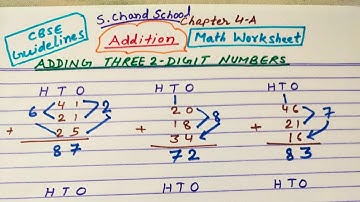 S. Chand School
CBSE Guidelines
Addition
Chapter 4-A
Math Worksheet
ADDING THREE 2-DIGIT NUMBERS
H T O H T O H T O
1 1
6 4 1 2 2 0 8 4 6 7
2 1 1 8 2 1
+ 2 5 + 3 4 + 1 6
8 7 7 2 8 3
H T O H T O H T O